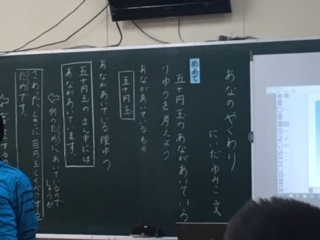 あなのやくわり
にいだゆみこ 文
めあて
五十円玉のあながあいている
りゆうを考えよう
あながあいているもの
五十円玉
あながあいている理ゆう
五十円玉のまん中には
あながあいています。
何のために、あいているので
しょうか
さわったときに百円玉とくべつする
ためです。